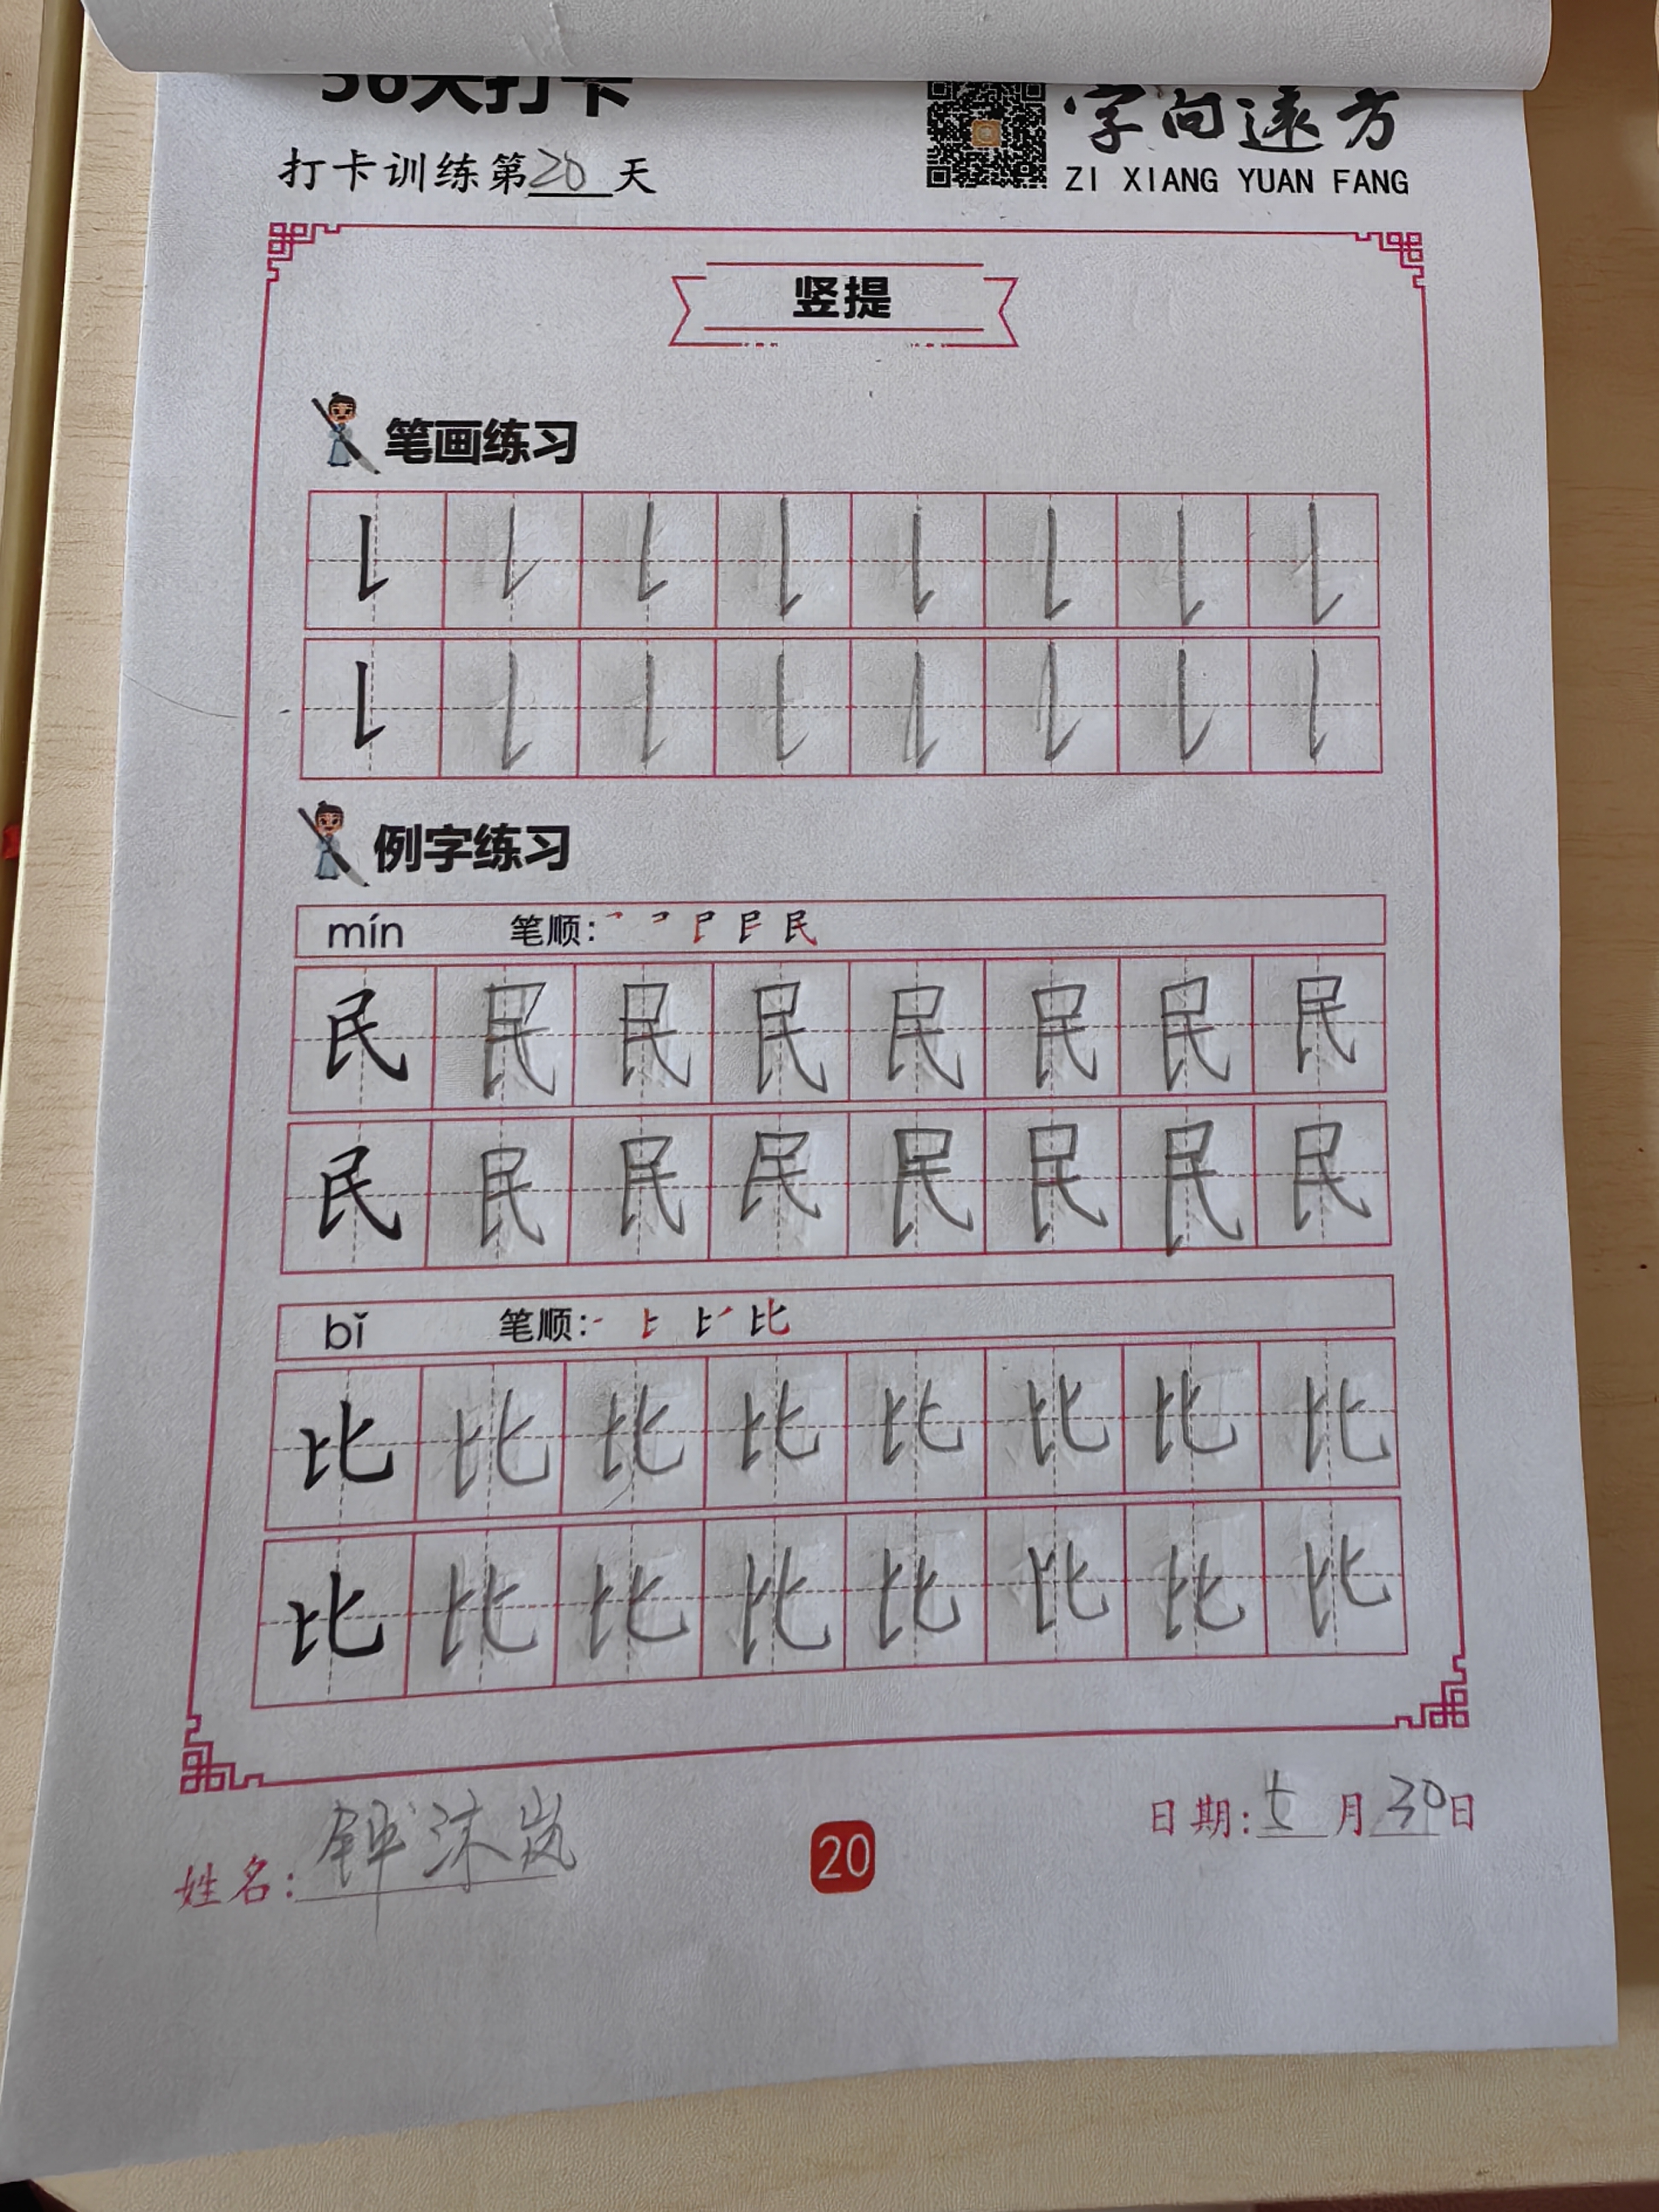 36天打卡
打卡训练第20天
字向远方
ZI XIANG YUAN FANG
竖提
笔画练习
例字练习
mín 笔顺:
民民民民民民民民
民民民民民民民民
bǐ 笔顺:
比比比比比比比比
比比比比比比比比
姓名:钟沐岚
20
日期:5月30日